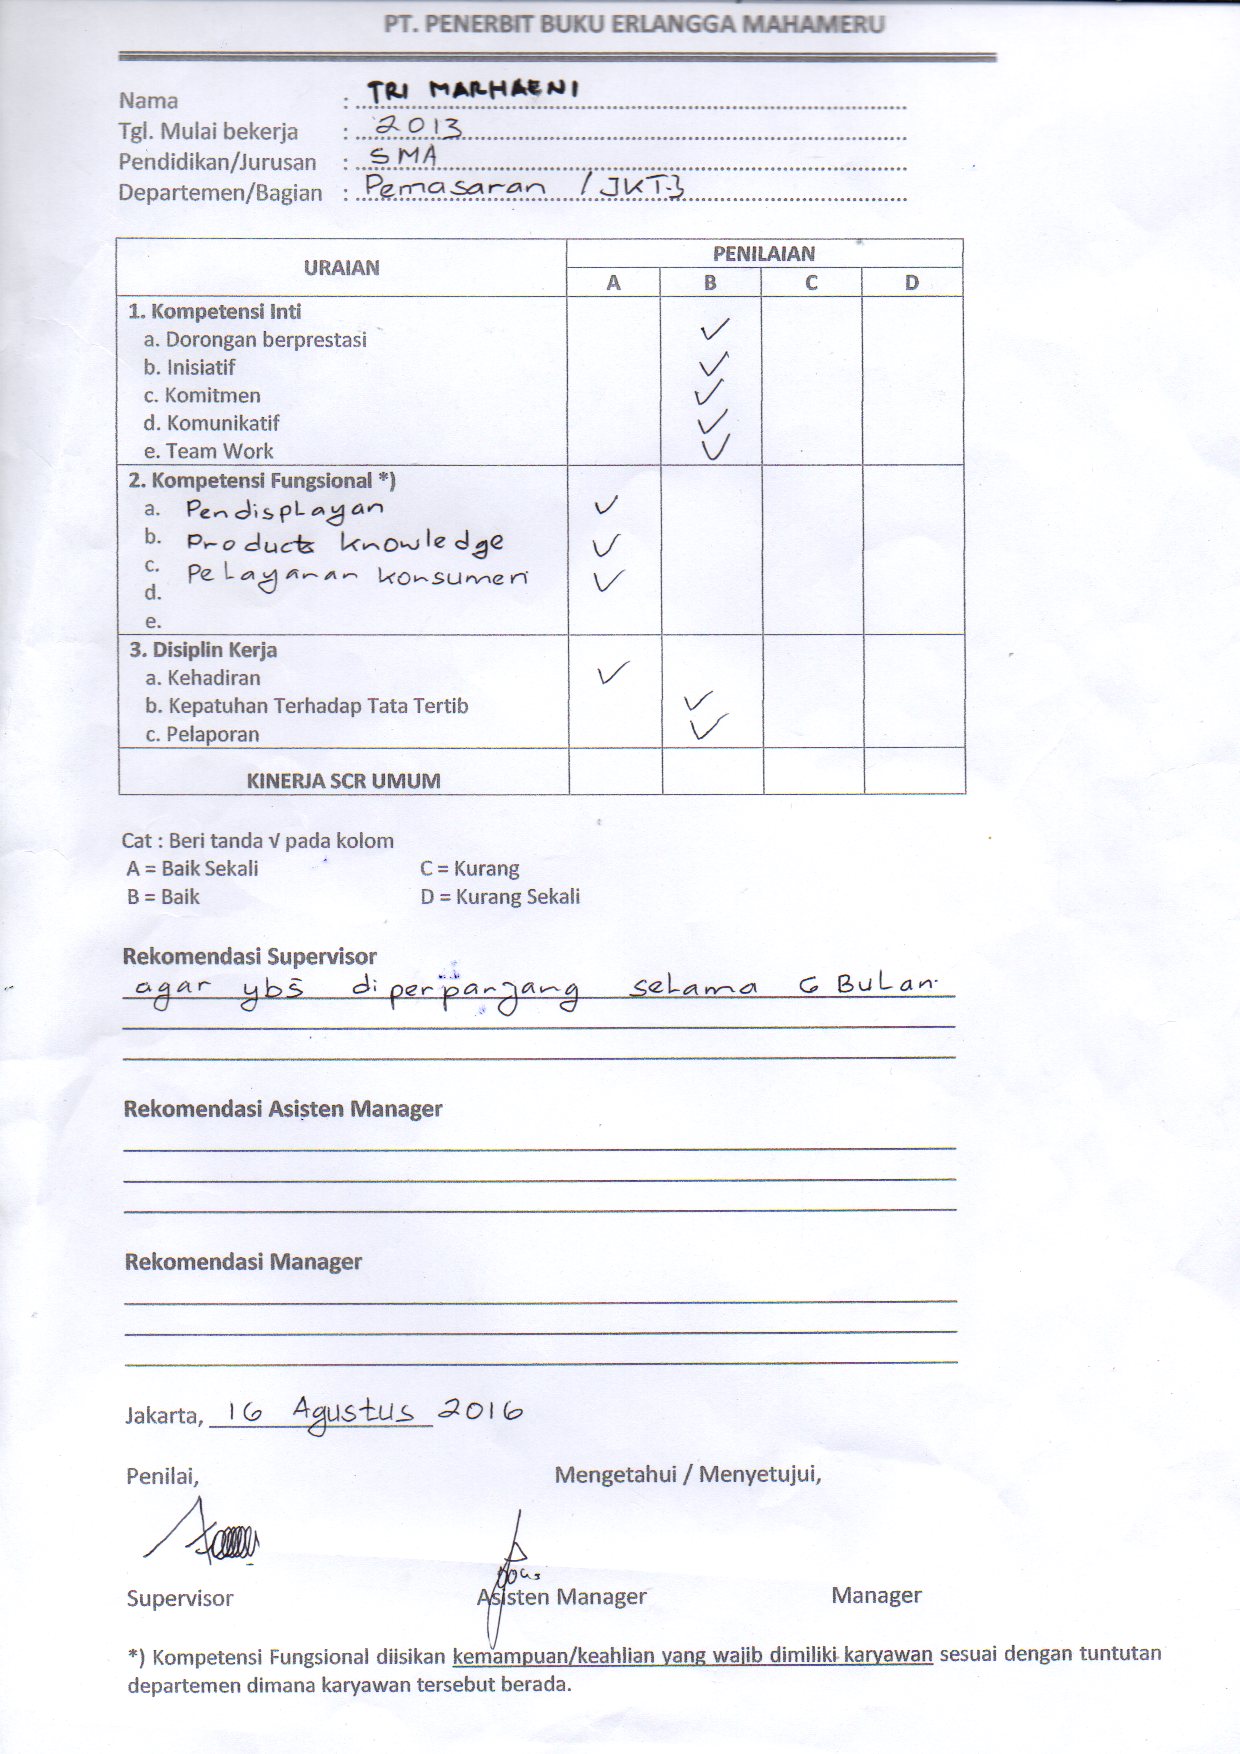 PT. PENERBIT BUKU ERLANGGA MAHAMERU
Nama : TRI MARHAENI
Tgl. Mulai bekerja : 2013
Pendidikan/Jurusan : SMA
Departemen/Bagian : Pemasaran / JKT.3
URAIAN PENILAIAN
A B C D
1. Kompetensi Inti
a. Dorongan berprestasi ✓
b. Inisiatif ✓
c. Komitmen ✓
d. Komunikatif ✓
e. Team Work ✓
2. Kompetensi Fungsional *)
a. Pendisplayan ✓
b. Product knowledge ✓
c. Pelayanan konsumen ✓
d.
e.
3. Disiplin Kerja
a. Kehadiran ✓
b. Kepatuhan Terhadap Tata Tertib ✓
c. Pelaporan ✓
KINERJA SCR UMUM
Cat : Beri tanda √ pada kolom
A = Baik Sekali C = Kurang
B = Baik D = Kurang Sekali
Rekomendasi Supervisor
agar ybs diperpanjang selama 6 Bulan.
Rekomendasi Asisten Manager
Rekomendasi Manager
Jakarta, 16 Agustus 2016
Penilai, Mengetahui / Menyetujui,
Supervisor Asisten Manager Manager
*) Kompetensi Fungsional diisikan kemampuan/keahlian yang wajib dimiliki karyawan sesuai dengan tuntutan
departemen dimana karyawan tersebut berada.